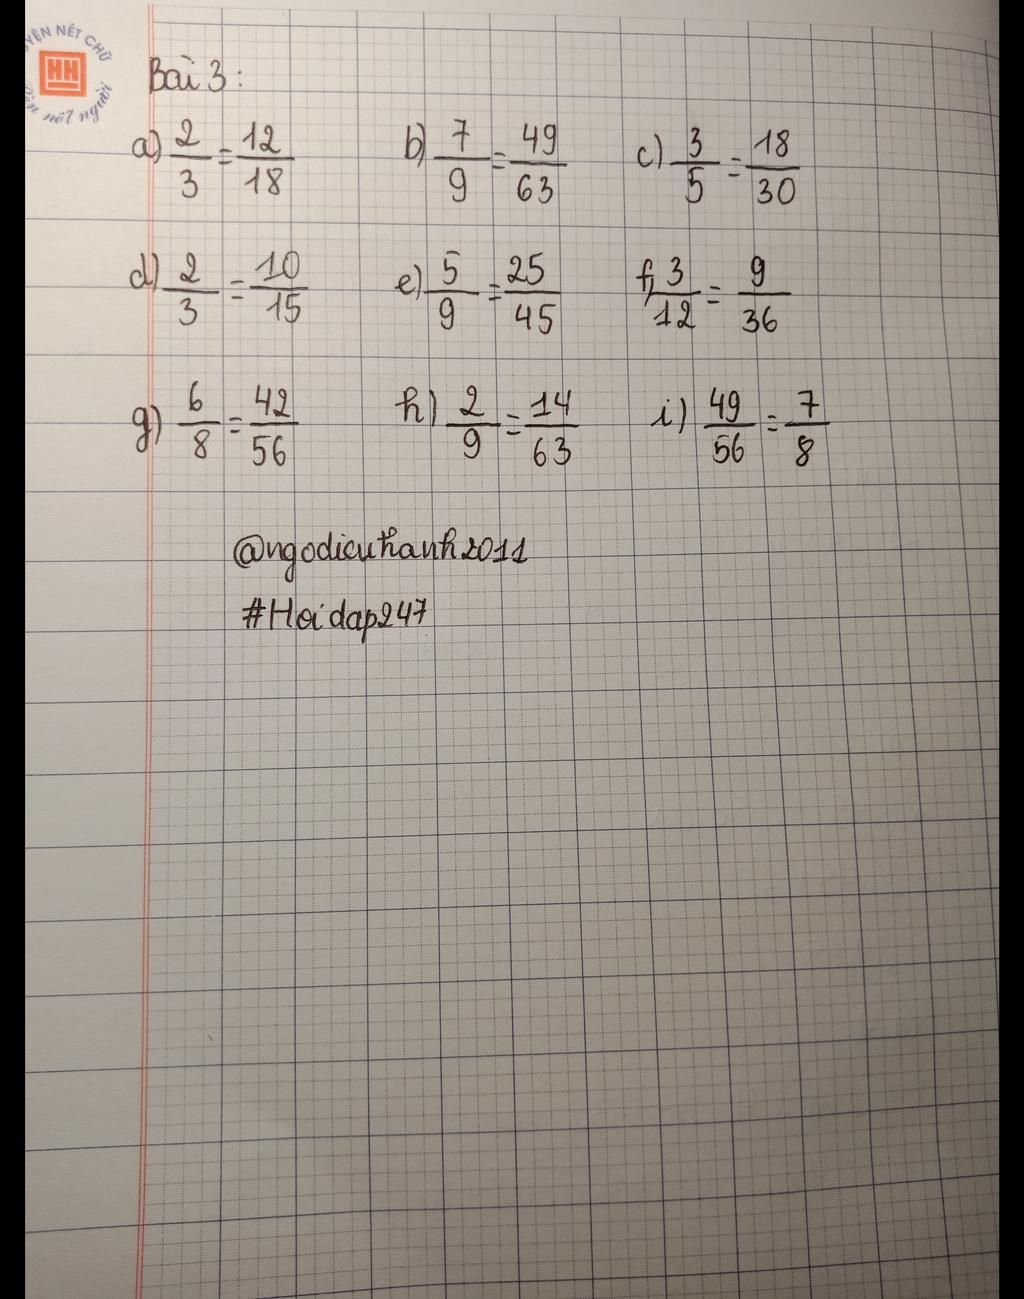 LUYỆN NÉT CHỮ
HH
Rèn nết người
Bài 3:
a) 2/3 = 12/18 b) 7/9 = 49/63 c) 3/5 = 18/30
d) 2/3 = 10/15 e) 5/9 = 25/45 f, 3/12 = 9/36
g) 6/8 = 42/56 h) 2/9 = 14/63 i) 49/56 = 7/8
@ngodieuthanh2011
#Hoidap247